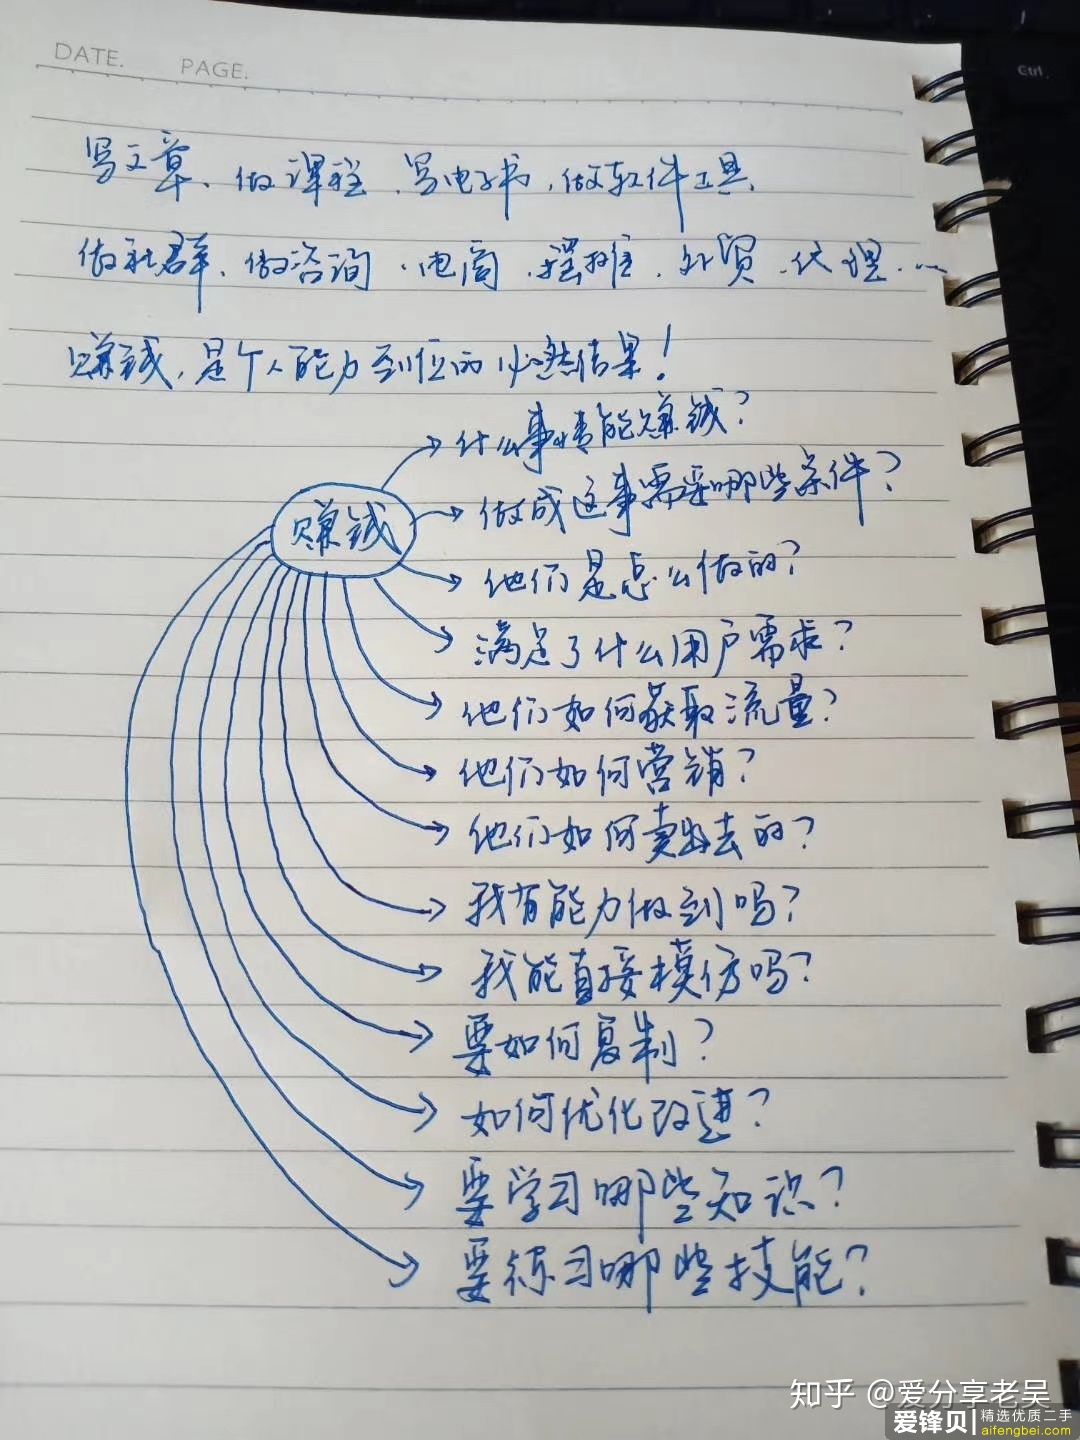 DATE. PAGE.
Ctrl
写文章、做课程、写电子书、做软件工具、
做社群、做咨询、电商、摆摊、外贸、代理、…
赚钱，是个人能力到位的必然结果！
什么事情能赚钱？
赚钱
做成这事需要哪些条件？
他们是怎么做的？
满足了什么用户需求？
他们如何获取流量？
他们如何营销？
他们如何卖出去的？
我有能力做到吗？
我能直接模仿吗？
要如何复制？
如何优化改进？
要学习哪些知识？
要练习哪些技能？
知乎 @爱分享老吴
爱锋贝 精选优质二手
aifengbei.com